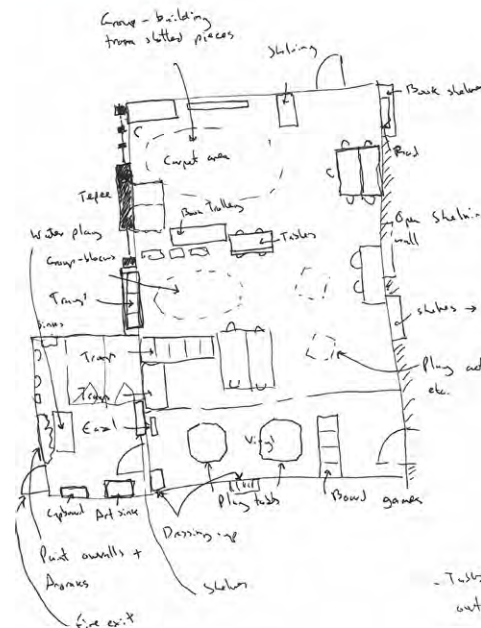 Group-building
from slotted pieces
Shelving
Book shelves
Carpet area
Tepee
Book trolley
Water play
Tables
Open shelving
wall
Group-blocks
Trays
shelves →
Trays
Trays
Play
etc.
Easel
Vinyl
Play tubs
Board games
Cupboard
Art sink
Dressing-up
Paint overalls +
Aprons
Shelves
Fire exit